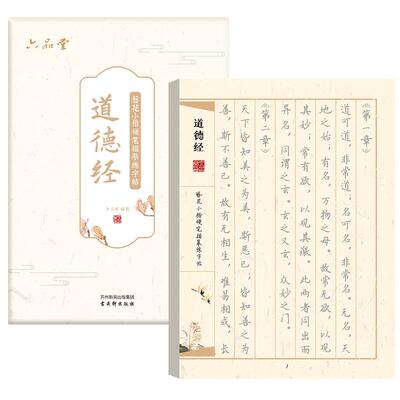 六品堂
簪花小楷硬笔描摹练字帖
道德经
苏州新闻出版集团
古吴轩出版社
《第一章》
道可道，非常道；名可名，非常名。无名，天
地之始；有名，万物之母。故常无欲，以观
其妙；常有欲，以观其徼。此两者同出而
异名，同谓之玄。玄之又玄，众妙之门。
《第二章》
天下皆知美之为美，斯恶已；皆知善之为
善，斯不善已。故有无相生，难易相成，长
道德经
簪花小楷硬笔描摹练字帖
1